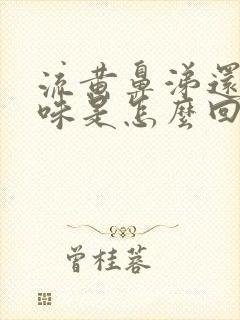 流黃鼻涕還
味是怎麼回
曾桂蓉